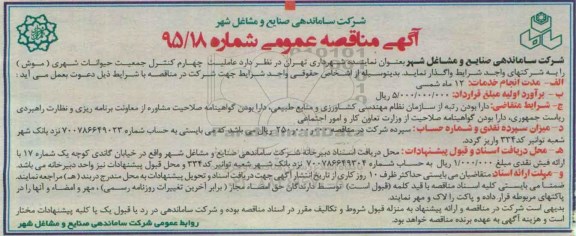 شرکت ساماندهی صنایع و مشاغل شهر
آگهی مناقصه عمومی شماره ۹۵/۱۸
شرکت ساماندهی صنایع و مشاغل شهر بعنوان نماینده شهرداری تهران در نظر دارد عملیات چهارم کنترل جمعیت حیوانات شهری (موش)
را به شرکتهای واجد شرایط واگذار نماید. بدینوسیله از اشخاص حقوقی واجد شرایط جهت شرکت در مناقصه با شرایط ذیل دعوت بعمل می آید:
الف- مدت انجام خدمات: ۱۲ ماه شمسی
ب- برآورد اولیه مبلغ قرارداد: ۵/۰۰۰/۰۰۰/۰۰۰ ریال
ج- شرایط متقاضی: دارا بودن رتبه از سازمان نظام مهندسی کشاورزی و منابع طبیعی، دارا بودن گواهینامه صلاحیت مشاوره از معاونت برنامه ریزی و نظارت راهبردی
ریاست جمهوری، دارا بودن گواهینامه صلاحیت از وزارت تعاون کار و امور اجتماعی
د- میزان سپرده نقدی و شماره حساب: سپرده شرکت در مناقصه ریال می باشد که می بایستی به حساب شماره ۷۰۰۷۸۶۶۴۹۰۲۳ نزد بانک شهر
شعبه توانیر کد ۳۳۴ واریز گردد.
ه- محل دریافت اسناد و قبول پیشنهادات: محل دریافت اسناد دبیرخانه شرکت ساماندهی صنایع و مشاغل شهر واقع در خیابان گاندی کوچه یک شماره ۱۷ با
ارائه فیش نقدی مبلغ ۱/۰۰۰/۰۰۰ ریال به حساب شماره ۷۰۰۷۸۶۶۴۹۳۰۴ نزد بانک شهر شعبه توانیر کد ۳۳۴ و محل قبول پیشنهادات نیز واحد دبیرخانه می باشد.
و- مهلت ارائه اسناد: متقاضیان می بایستی حداکثر ظرف ۱۰ روز کاری از تاریخ انتشار آگهی جهت دریافت اسناد و تحویل پیشنهادات به محل مندرج در بند (ه) مراجعه نمایند.
ضمنا می بایستی کلیه اسناد مناقصه با قید کلمه (قبول است) توسط دارندگان حق امضاء مجاز (برابر آخرین تغییرات روزنامه رسمی)، مهر و امضاء و آنها را در
پاکتهای مربوطه قرار داده و پاکت را لاک و مهر نمایند.
بدیهی است شرکت در مناقصه و ارائه پیشنهاد به منزله قبول شروط و تکالیف مقرر در اسناد مناقصه بوده و شرکت ساماندهی در رد یا قبول یک یا کلیه پیشنهادات مختار
است و هزینه آگهی به عهده برنده مناقصه خواهد بود.
روابط عمومی شرکت ساماندهی صنایع و مشاغل شهر